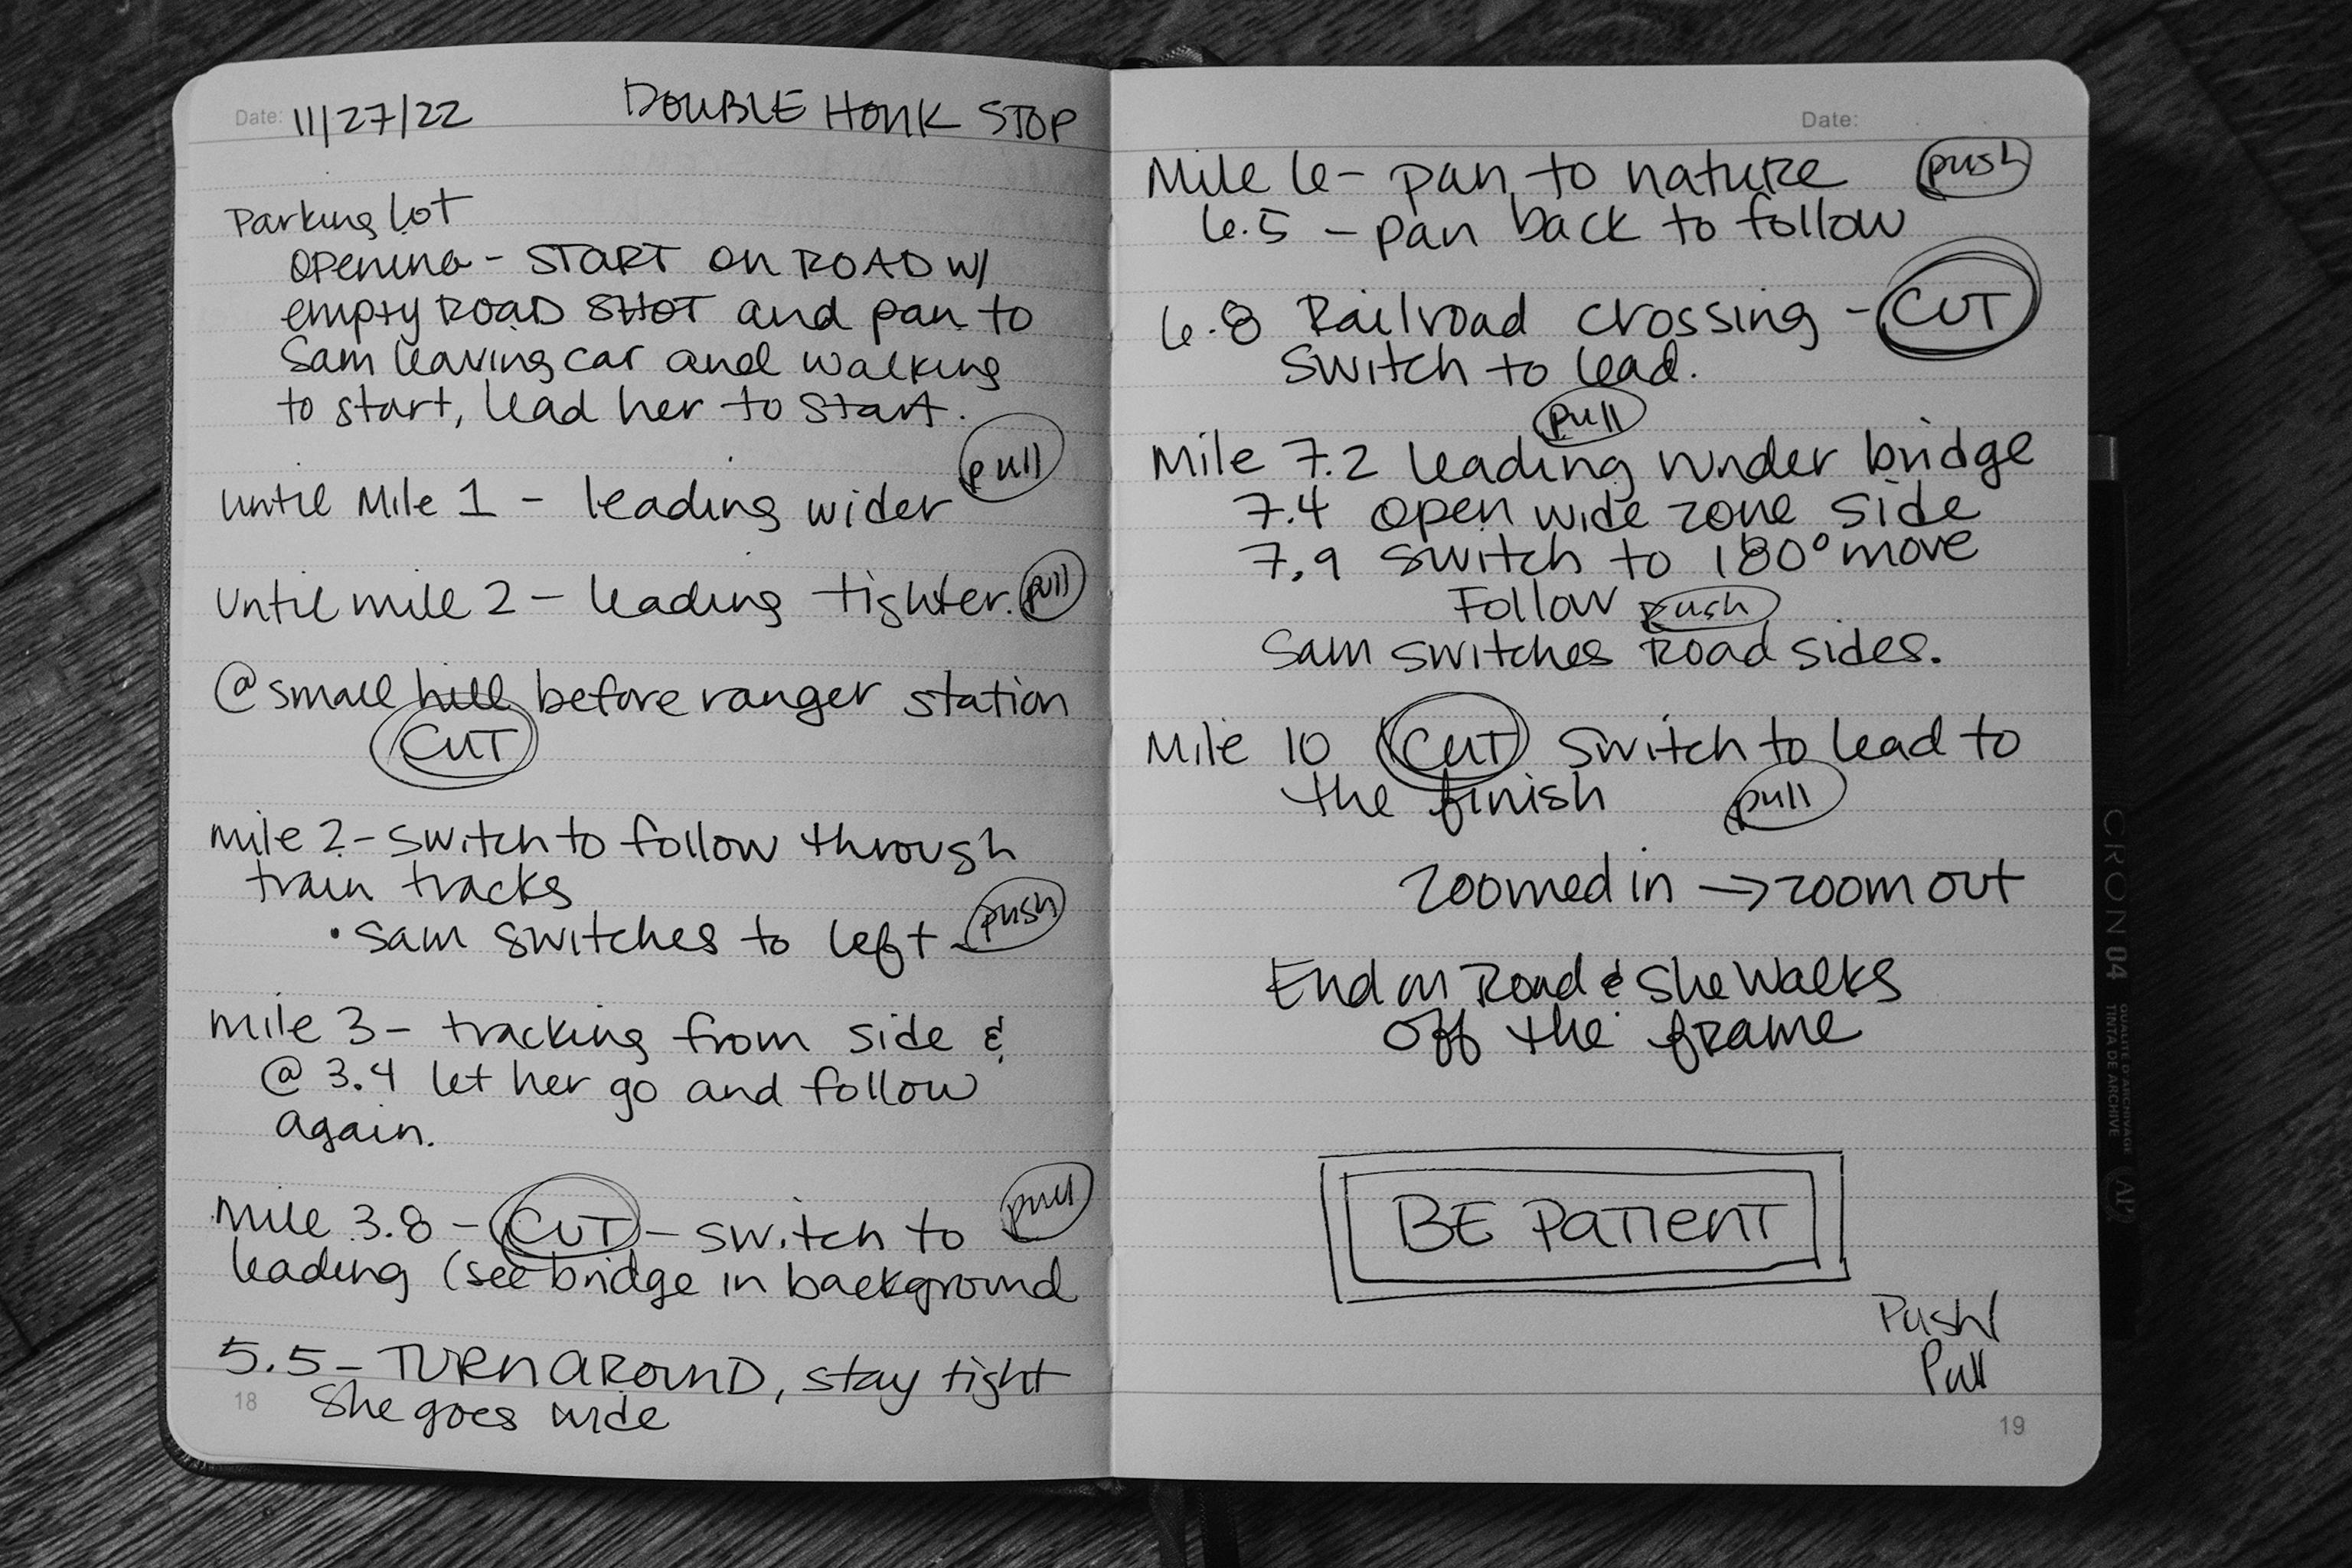 Date: 11/27/22 DOUBLE HONK STOP
Parking lot
opening - START ON ROAD W/
empty ROAD SHOT and pan to
Sam leaving car and walking
to start, lead her to start.
until Mile 1 - leading wider pull
until mile 2 - leading tighter. pull
@ small hill before ranger station
CUT
mile 2 - switch to follow through
train tracks
• Sam switches to left push
mile 3 - tracking from side &
@ 3.4 let her go and follow
again.
mile 3.8 - CUT - switch to pull
leading (see bridge in background
5.5 - TURNAROUND, stay tight
She goes wide
18
Date:
Mile 6 - pan to nature push
6.5 - pan back to follow
6.8 Railroad crossing - CUT
Switch to lead.
pull
Mile 7.2 leading under bridge
7.4 open wide zone side
7.9 switch to 180° move
Follow push
Sam switches Road sides.
Mile 10 CUT Switch to lead to
the finish pull
Zoomed in → zoom out
End on Road & she walks
off the frame
BE PATIENT
Push/
Pull
19
CRON 04
QUALITÉ D'ARCHIVAGE
TINTA DE ARCHIVE
AP